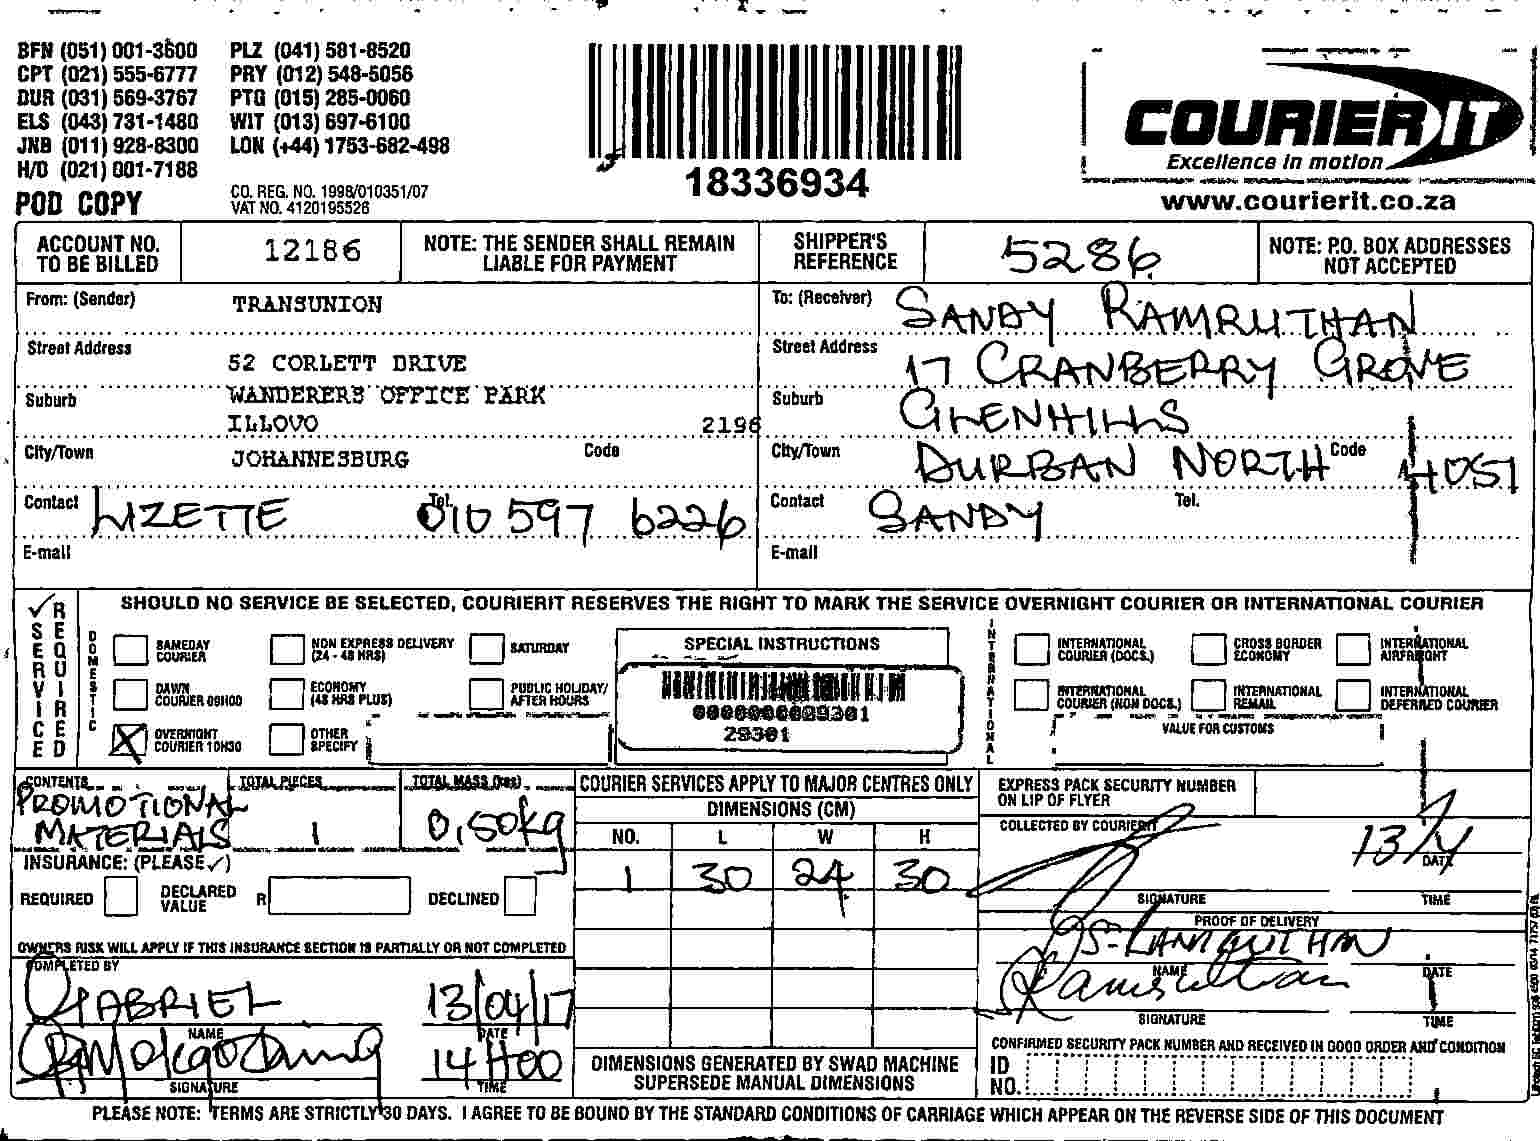 BFN (051) 001-3600 PLZ (041) 581-8520
CPT (021) 555-6777 PRY (012) 548-5056
DUR (031) 569-3767 PTG (015) 285-0060
ELS (043) 731-1480 WIT (013) 697-6100
JNB (011) 928-8300 LON (+44) 1753-682-498
H/O (021) 001-7188
POD COPY
CO. REG. NO. 1998/010351/07
VAT NO. 4120195526
18336934
COURIER IT
Excellence in motion
www.courierit.co.za
ACCOUNT NO. TO BE BILLED 12186
NOTE: THE SENDER SHALL REMAIN LIABLE FOR PAYMENT
SHIPPER'S REFERENCE 5286
NOTE: P.O. BOX ADDRESSES NOT ACCEPTED
From: (Sender) TRANSUNION
Street Address 52 CORLETT DRIVE
Suburb WANDERERS OFFICE PARK
ILLOVO 2196
City/Town JOHANNESBURG Code
Contact LIZETTE Tel. 010 597 6226
E-mail
To: (Receiver) SANDY RAMRUTHAN
Street Address 17 CRANBERRY GROVE
Suburb GLENHILLS
City/Town DURBAN NORTH Code 4051
Contact SANDY Tel.
E-mail
SERVICE REQUIRED
SHOULD NO SERVICE BE SELECTED, COURIERIT RESERVES THE RIGHT TO MARK THE SERVICE OVERNIGHT COURIER OR INTERNATIONAL COURIER
DOMESTIC
SAMEDAY COURIER
NON EXPRESS DELIVERY (24 - 48 HRS)
SATURDAY
DAWN COURIER 09H00
ECONOMY (48 HRS PLUS)
PUBLIC HOLIDAY/ AFTER HOURS
OVERNIGHT COURIER 10H30
OTHER SPECIFY
SPECIAL INSTRUCTIONS
0000000029301
29301
INTERNATIONAL
INTERNATIONAL COURIER (DOCS.)
CROSS BORDER ECONOMY
INTERNATIONAL AIRFREIGHT
INTERNATIONAL COURIER (NON DOCS.)
INTERNATIONAL REMAIL
INTERNATIONAL DEFERRED COURIER
VALUE FOR CUSTOMS
CONTENTS PROMOTIONAL MATERIALS
TOTAL PIECES 1
TOTAL MASS (kgs) 0,50kg
INSURANCE: (PLEASE ✓)
REQUIRED
DECLARED VALUE R
DECLINED
OWNERS RISK WILL APPLY IF THIS INSURANCE SECTION IS PARTIALLY OR NOT COMPLETED
COMPLETED BY
GABRIEL 13/04/17
NAME DATE
14H00
SIGNATURE TIME
COURIER SERVICES APPLY TO MAJOR CENTRES ONLY
DIMENSIONS (CM)
NO. L W H
1 30 24 30
DIMENSIONS GENERATED BY SWAD MACHINE
SUPERSEDE MANUAL DIMENSIONS
EXPRESS PACK SECURITY NUMBER
ON LIP OF FLYER
COLLECTED BY COURIERIT
13/4
DATE
SIGNATURE TIME
PROOF OF DELIVERY
S. RAMRUTHAN
NAME DATE
SIGNATURE TIME
CONFIRMED SECURITY PACK NUMBER AND RECEIVED IN GOOD ORDER AND CONDITION
ID NO.
PLEASE NOTE: TERMS ARE STRICTLY 30 DAYS. I AGREE TO BE BOUND BY THE STANDARD CONDITIONS OF CARRIAGE WHICH APPEAR ON THE REVERSE SIDE OF THIS DOCUMENT